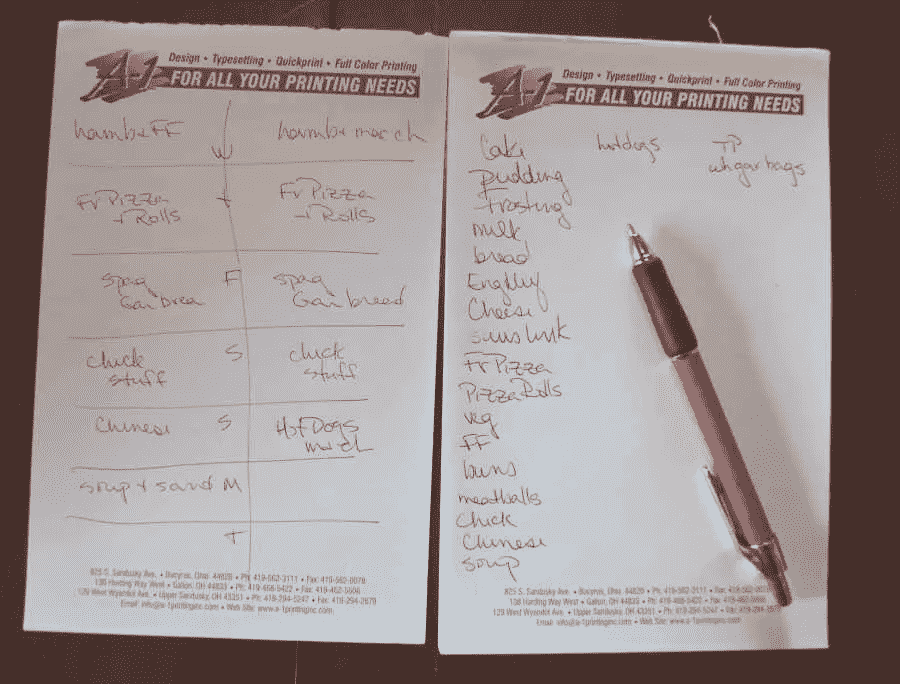 A-1
Design • Typesetting • Quickprint • Full Color Printing
FOR ALL YOUR PRINTING NEEDS
hambe FF
W
hamb + mac ch
Fr Pizza
+ Rolls
T
Fr Pizza
+ Rolls
spag
Gar brea
F
spag
Gar bread
chick
stuff
S
chick
stuff
Chinese
S
Hot Dogs
mac ch
soup + sand M
T
825 S. Sandusky Ave. • Bucyrus, Ohio 44820 • Ph: 419-562-3111 • Fax: 419-562-0078
138 Harding Way West • Galion, OH 44833 • Ph: 419-468-5422 • Fax: 419-462-5606
129 West Wyandot Ave. • Upper Sandusky, OH 43351 • Ph: 419-294-5247 • Fax: 419-294-2679
Email: info@a-1printinginc.com • Web Site: www.a-1printinginc.com
A-1
Design • Typesetting • Quickprint • Full Color Printing
FOR ALL YOUR PRINTING NEEDS
Cake
hotdogs
TP
pudding
wh gar bags
frosting
milk
bread
Cheese
Fr Pizza
Pizza Rolls
veg
FF
buns
meatballs
Chick
Chinese
soup
825 S. Sandusky Ave. • Bucyrus, Ohio 44820 • Ph: 419-562-3111 • Fax: 419-562-0078
138 Harding Way West • Galion, OH 44833 • Ph: 419-468-5422 • Fax: 419-462
129 West Wyandot Ave. • Upper Sandusky, OH 43351 • Ph: 419-294-5247 • Fax: 419-294
Email: info@a-1printinginc.com • Web Site: www.a-1printinginc.com